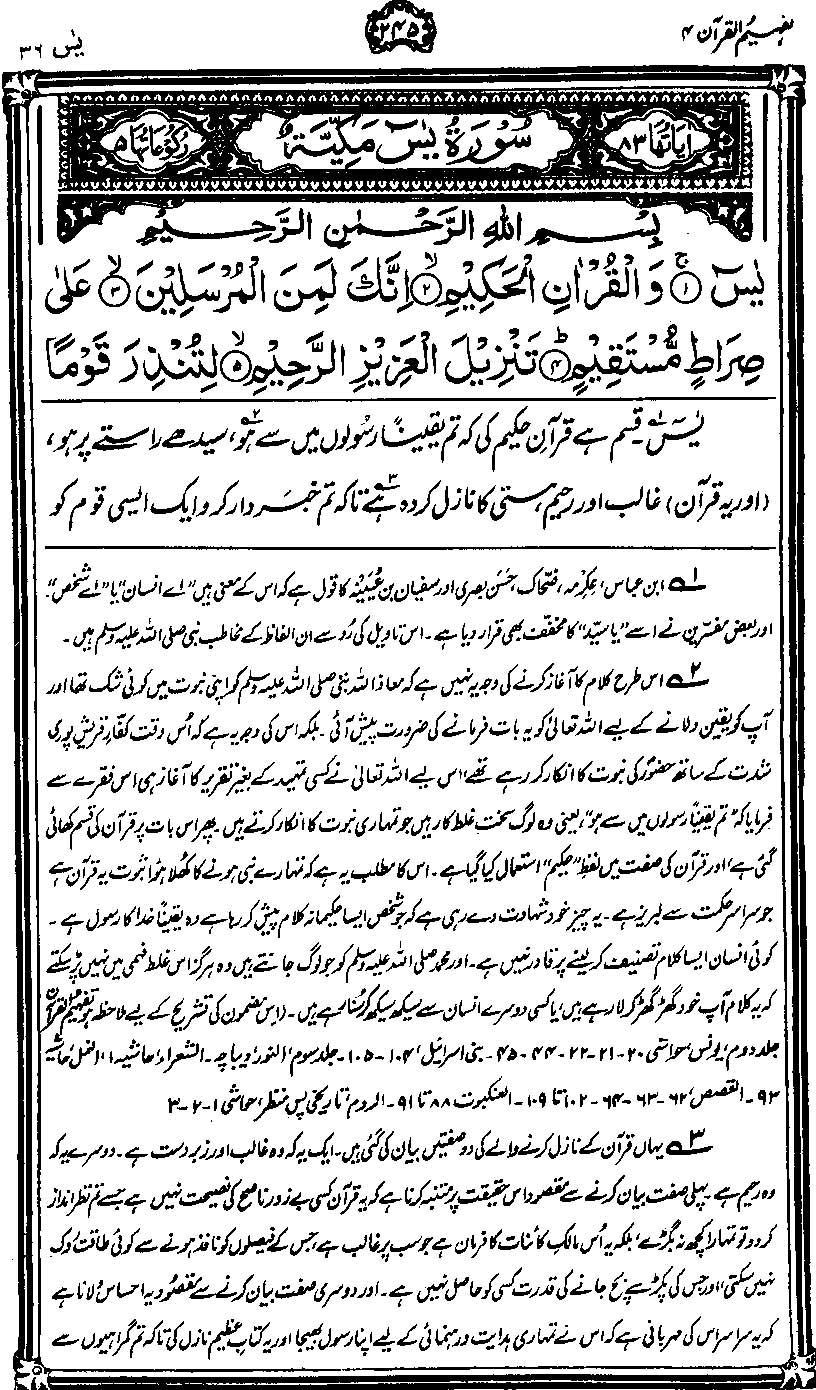 تفہیم القرآن ۴
۲۴۵
یٰس ۳۶
اٰیَاتُهَا ۸۳
سُوْرَةُ یٰسٓ مَكِّیَّةٌ
رُكُوْعَاتُهَا ۵
بِسْمِ اللهِ الرَّحْمٰنِ الرَّحِيْمِ
يٰسٓ ۚ﴿۱﴾ وَالْقُرْاٰنِ الْحَكِيْمِ ۙ﴿۲﴾ اِنَّكَ لَمِنَ الْمُرْسَلِيْنَ ۙ﴿۳﴾ عَلٰى
صِرَاطٍ مُّسْتَقِيْمٍ ؕ﴿۴﴾ تَنْزِيْلَ الْعَزِيْزِ الرَّحِيْمِ ۙ﴿۵﴾ لِتُنْذِرَ قَوْمًا
یٰسٓ۱۔ قسم ہے قرآنِ حکیم کی کہ تم یقیناً رسُولوں میں سے ہو۲، سیدھے راستے پر ہو،
(اور یہ قرآن) غالب اور رحیم ہستی کا نازل کردہ ہے۳ تاکہ تم خبردار کرو ایک ایسی قوم کو
۱ ابن عباس، عِکرِمہ، ضحّاک، حَسَن بصری اور سفیان بن عُیَیْنَہ کا قول ہے کہ اس کے معنی ہیں "اے انسان" یا "اے شخص"۔
اور بعض مفسّرین نے اسے "یا سیّد" کا مخفّف بھی قرار دیا ہے۔ اس تاویل کی رُو سے ان الفاظ کے مخاطب نبی صلی اللہ علیہ وسلم ہیں۔
۲ اس طرح کلام کا آغاز کرنے کی وجہ یہ نہیں ہے کہ معاذ اللہ نبی صلی اللہ علیہ وسلم کو اپنی نبوت میں کوئی شک تھا اور
آپ کو یقین دلانے کے لیے اللہ تعالیٰ کو یہ بات فرمانے کی ضرورت پیش آئی۔ بلکہ اس کی وجہ یہ ہے کہ اُس وقت کفّارِ قریش پوری
شدت کے ساتھ حضورؐ کی نبوت کا انکار کر رہے تھے، اس لیے اللہ تعالیٰ نے کسی تمہید کے بغیر تقریر کا آغاز ہی اس فقرے سے
فرمایا کہ "تم یقیناً رسولوں میں سے ہو"، یعنی وہ لوگ سخت غلط کار ہیں جو تمہاری نبوت کا انکار کرتے ہیں۔ پھر اس بات پر قرآن کی قسم کھائی
گئی ہے، اور قرآن کی صفت میں لفظ "حکیم" استعمال کیا گیا ہے۔ اس کا مطلب یہ ہے کہ تمہارے نبی ہونے کا کھُلا ہوا ثبوت یہ قرآن ہے
جو سراسر حکمت سے لبریز ہے۔ یہ چیز خود شہادت دے رہی ہے کہ جو شخص ایسا حکیمانہ کلام پیش کر رہا ہے وہ یقیناً خدا کا رسول ہے۔
کوئی انسان ایسا کلام تصنیف کر لینے پر قادر نہیں ہے۔ اور محمد صلی اللہ علیہ وسلم کو جو لوگ جانتے ہیں وہ ہرگز اس غلط فہمی میں نہیں پڑ سکتے
کہ یہ کلام آپ خود گھڑ گھڑ کر لا رہے ہیں، یا کسی دوسرے انسان سے سیکھ سیکھ کر سُنا رہے ہیں۔ (اس مضمون کی تشریح کے لیے ملاحظہ ہو تفہیم القرآن
جلد دوم، یونس، حواشی ۲۰-۲۱-۲۲-۴۴-۴۵۔ بنی اسرائیل، ۱۰۴-۱۰۵۔ جلد سوم، النور، دیباچہ۔ الشعراء، حاشیہ ۱، النمل، حاشیہ
۹۳۔ القصص، ۶۲-۶۳-۶۴-۱۰۲ تا ۱۰۹۔ العنکبوت ۸۸ تا ۹۱۔ الروم، تاریخی پس منظر، حواشی ۱-۲-۳
۳ یہاں قرآن کے نازل کرنے والے کی دو صفتیں بیان کی گئی ہیں۔ ایک یہ کہ وہ غالب اور زبردست ہے۔ دوسرے یہ کہ
وہ رحیم ہے۔ پہلی صفت بیان کرنے سے مقصود اس حقیقت پر متنبّہ کرنا ہے کہ یہ قرآن کسی بے زور ناصح کی نصیحت نہیں ہے جسے تم نظر انداز
کر دو تو تمہارا کچھ نہ بگڑے، بلکہ یہ اُس مالکِ کائنات کا فرمان ہے جو سب پر غالب ہے، جس کے فیصلوں کو نافذ ہونے سے کوئی طاقت روک
نہیں سکتی، اور جس کی پکڑ سے بچ جانے کی قدرت کسی کو حاصل نہیں ہے۔ اور دوسری صفت بیان کرنے سے مقصُود یہ احساس دلانا ہے
کہ یہ سراسر اس کی مہربانی ہے کہ اس نے تمہاری ہدایت و رہنمائی کے لیے اپنا رسول بھیجا اور یہ کتابِ عظیم نازل کی تاکہ تم گمراہیوں سے